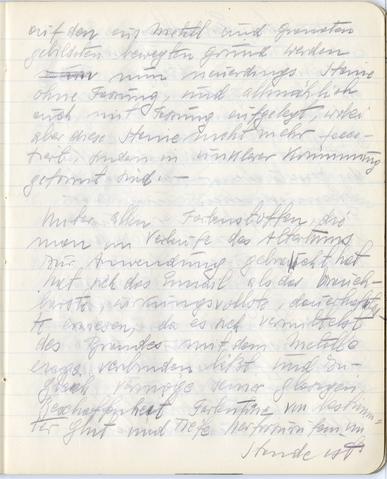 auf den aus Metall und Granaten
gebildeten bewegten Grund werden
nun neuerdings Steine
ohne Fassung, und allmählich
auch mit Fassung aufgelegt, wobei
aber diese Steine nicht mehr facet-
tiert, sondern in
geformt sind. —
Unter allen Farbenstoffen, die
man im Verlaufe des Altertums
zur Anwendung gebracht hat
hat sich das Email als der brauch-
barste, wirkungsvollste, dauerhafte-
te erwiesen, da es sich vermittelst
des Brandes mit dem Metalle
enge verbinden lässt und zu-
gleich vermöge seiner glasigen
Beschaffenheit Farbentöne von bestimm-
ter Glut und Tiefe hervorzurufen im
Stande ist